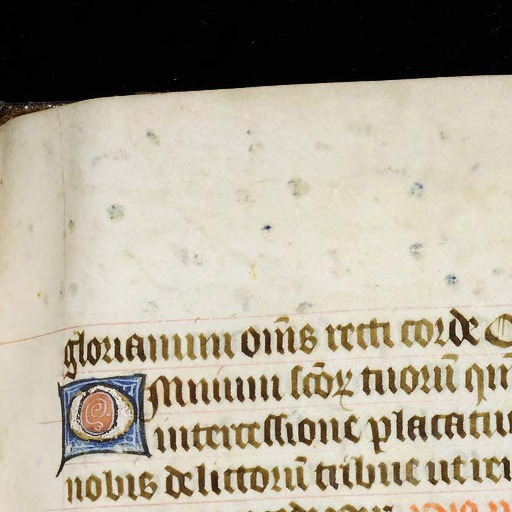 gloriamini om̄s recti corde O
OMnium sc̄oꝝ tuorū qm̄
intercessione placatu
nobis delictorū tribue ut rei